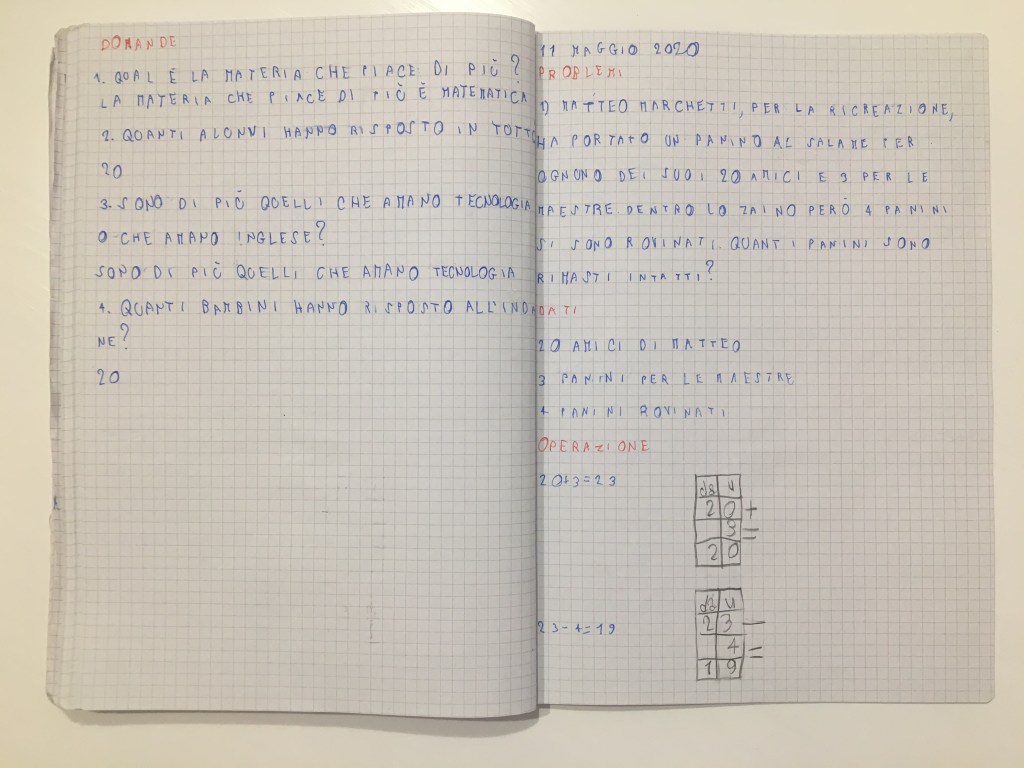 DOMANDE
1. QUAL È LA MATERIA CHE PIACE DI PIÙ?
LA MATERIA CHE PIACE DI PIÙ È MATEMATICA
2. QUANTI ALUNNI HANNO RISPOSTO IN TUTTO
20
3. SONO DI PIÙ QUELLI CHE AMANO TECNOLOGIA
O CHE AMANO INGLESE?
SONO DI PIÙ QUELLI CHE AMANO TECNOLOGIA
4. QUANTI BAMBINI HANNO RISPOSTO ALL'INDA
NE?
20
11 MAGGIO 2020
PROBLEMI
1) MATTEO MARCHETTI, PER LA RICREAZIONE,
HA PORTATO UN PANINO AL SALAME PER
OGNUNO DEI SUOI 20 AMICI E 3 PER LE
MAESTRE DENTRO LO ZAINO PERÒ 4 PANINI
SI SONO ROVINATI. QUANTI PANINI SONO
RIMASTI INTATTI?
DATI
20 AMICI DI MATTEO
3 PANINI PER LE MAESTRE
4 PANINI ROVINATI
OPERAZIONE
20+3=23
da u
20+
3=
20
23-4=19
da u
23-
4=
19